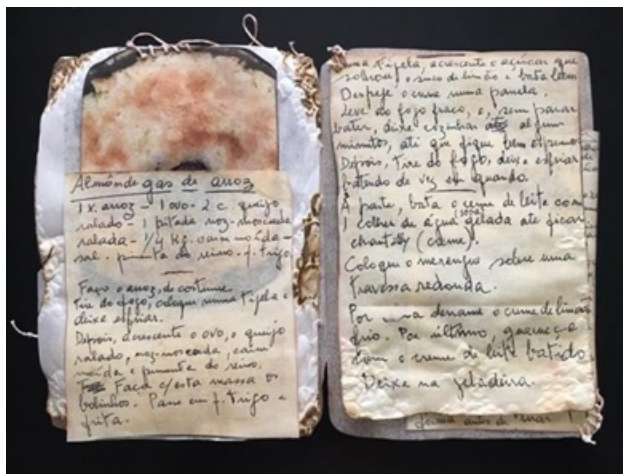 Almôndegas de arroz
1 x. arroz - 1 ovo - 2 c. queijo
ralado - 1 pitada noz-moscada
ralada - 1/4 kg. carne moída -
sal. pimenta do reino. f. trigo.
Faço o arroz, do costume.
Tire do fogo, coloque numa tijela e
deixe esfriar.
Depois, acrescente o ovo, o queijo
ralado, noz-moscada, carne
moída e pimenta do reino.
Faça c/ esta massa os
bolinhos. Passe em f. trigo e
frita.
uma tijela, acrescente o açúcar que
sobrou o suco de limão e bata bem
Despeje o creme uma panela.
Leve ao fogo fraco, e, sem parar
bater, deixe cozinhar até alguns
minutos, até que fique bem espesso
Depois, tire do fogo, deixe esfriar
batendo de vez em quando.
À parte, bata o creme de leite com
1 colher de água (sopa) gelada até ficar
chantilly (creme).
Coloque o merengue sobre uma
travessa redonda.
Por derrame o creme de limão
frio. Por último, guarneça
com o creme de leite batido
Deixe na geladeira.
antes de